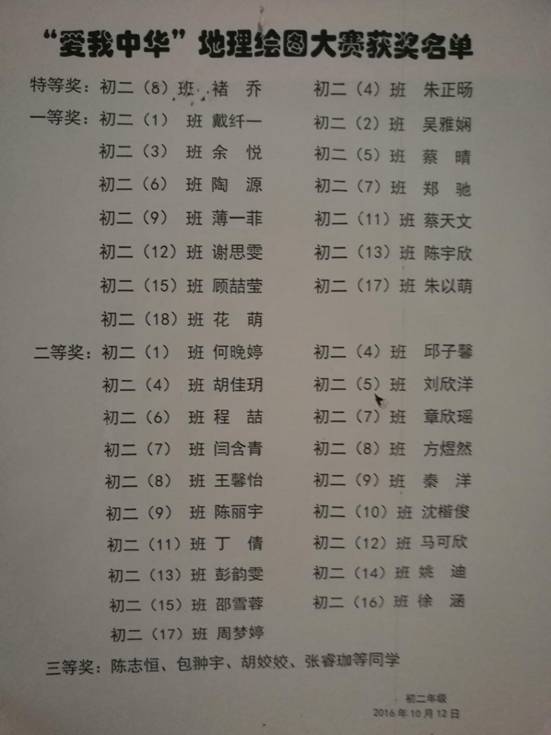 “爱我中华”地理绘图大赛获奖名单
特等奖：初二（8）班 褚 乔 初二（4）班 朱正旸
一等奖：初二（1）班 戴纤一 初二（2）班 吴雅娴
初二（3）班 余 悦 初二（5）班 蔡 晴
初二（6）班 陶 源 初二（7）班 郑 驰
初二（9）班 薄一菲 初二（11）班 蔡天文
初二（12）班 谢思雯 初二（13）班 陈宇欣
初二（15）班 顾喆莹 初二（17）班 朱以萌
初二（18）班 花 萌
二等奖：初二（1）班 何晚婷 初二（4）班 邱子馨
初二（4）班 胡佳玥 初二（5）班 刘欣洋
初二（6）班 程 喆 初二（7）班 章欣瑶
初二（7）班 闫含青 初二（8）班 方煜然
初二（8）班 王馨怡 初二（9）班 秦 洋
初二（9）班 陈丽宇 初二（10）班 沈楷俊
初二（11）班 丁 倩 初二（12）班 马可欣
初二（13）班 彭韵雯 初二（14）班 姚 迪
初二（15）班 邵雪蓉 初二（16）班 徐 涵
初二（17）班 周梦婷
三等奖：陈志恒、包翀宇、胡姣姣、张睿珈等同学
初二年级
2016年10月12日